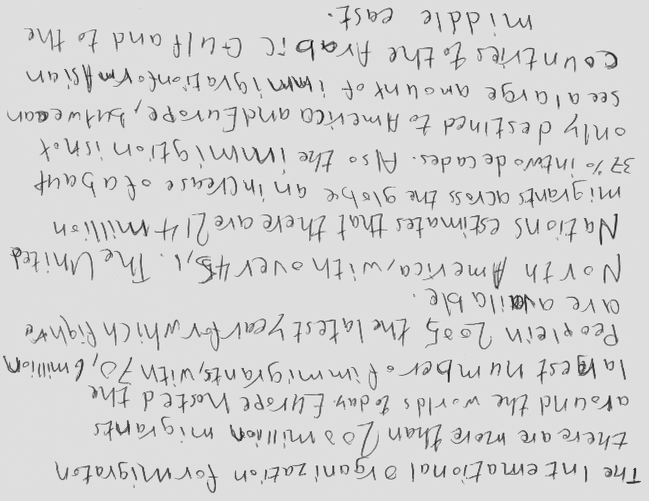 The International Organization for migraton
there are more than 200 million migrants
around the worlds today Europe hosted the
largest number of immigrants, with 70,6 million
People in 2005, the latest year for which fighre
are available.
North America, with over 45,1. The United
Nations estimates that there are 214 million
migrants across the globe an increase of abaut
37% in two decades. Also the immigtion is not
only destined to America and Europe, butween
see a large amount of immigration form Asian
countries to the Arabic Gulf and to the
middle east.